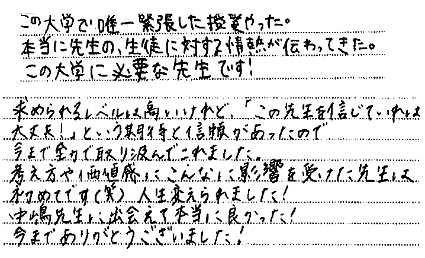 この大学で唯一緊張した授業やった。
本当に先生の、生徒に対する情熱が伝わってきた。
この大学に必要な先生です!
求められるレベルは高いけれど、「この先生を信じていれば
大丈夫!」という期待と信頼があったので
今まで全力で取り組んでこれました。
考え方や価値感に、こんなに影響を受けた先生は
初めてです(笑) 人生変えられました!
中嶋先生に出会えて本当に良かった!
今までありがとうございました!